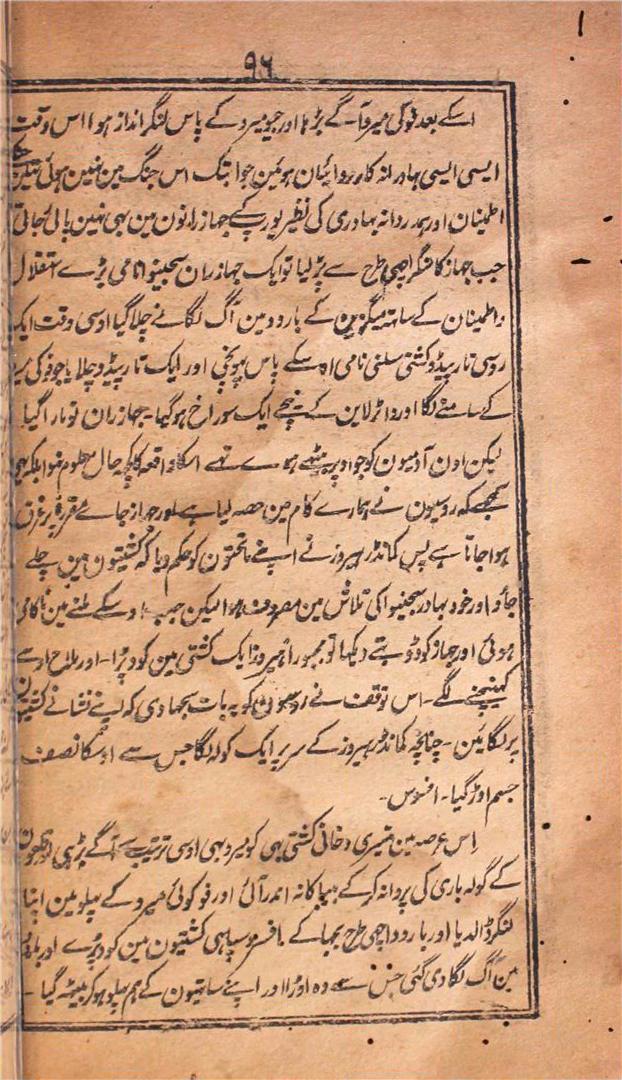 ۹۶
اسکے بعد فوکی میرو آ۔گے بڑہا اور جیومیرو کے پاس لنگر انداز ہوا اس وقت
ایسی ایسی بہادرانہ کارروائیان ہوئین جو ابتک اس جنگ مین نہین ہوئی تہین
اطمینان اور ہمدردانہ بہادری کی نظیر یورپ کے جہاز رانون مین بہی نہین پائی جاتی
جب جہاز کا لنگر اچہی طرح سے پڑ لیا تو ایک جہاز ران سجینوانامی بڑے استقلال
و اطمینان کے ساتہہ میگزین کے بارود مین آگ لگانے چلا گیا اوسی وقت ایک
روسی تارپیڈو کشتی سلنی نامی اسکے پاس پہونچی اور ایک تارپیڈو چلایا جو فوکی
کے سامنے لگا اور واٹر لاین کے نیچے ایک سوراخ ہوگیا۔جہاز ران تو مارا گیا
لیکن اون آدمیون کو جو اوپر بیٹہے ہوے تہے اسکا واقعہ کا کچہ حال معلوم نہوا بلکہ یہی
سمجہے کہ روسیون نے ہمارے کام مین حصہ لیا ہے اور جہاز جاے مقررہ پر غرق
ہوا جاتا ہے پس کمانڈر ہیروز نے اپنے ماتحتون کو حکم دیا کہ کشتیون مین چلے
جاؤ اور خود بہادر سجینوا کی تلاش مین مصروف ہوا لیکن جب اوسکے ملنے مین ناکامی
ہوئی اور جہاز کو ڈوبتے دیکہا تو مجبوراً ہیروز ایک کشتی مین کود پڑا۔اور ملاح اوسے
کہینچنے لگے۔اس توقف نے روسیون کو یہ بات سجہا دی کہ اپنے نشانے کشتیون
پر لگائین۔چنانچہ کمانڈر ہیروز کے سر پر ایک گولہ لگا جس سے اوسکا نصف
جسم اوڑ گیا۔افسوس۔
اس عرصہ مین تیسری دخانی کشتی یہی کو میرو بہی اوسی ترتیب سے آگے بڑہی
کے گولہ باری کی پروانہ کرکے بیباکانہ اندر آئی اور فوکوئی میرو کے پہلو مین اپنا
لنگر ڈالدیا اور بارود اچہی طرح بچہا کے افسر و سپاہی کشتیون مین کود پڑے اور بارود
مین آگ لگا دی گئی جس سے وہ اوڑا اور اپنے ساتہیون کے ہم پہلو ہوکر بیٹہہ گیا۔